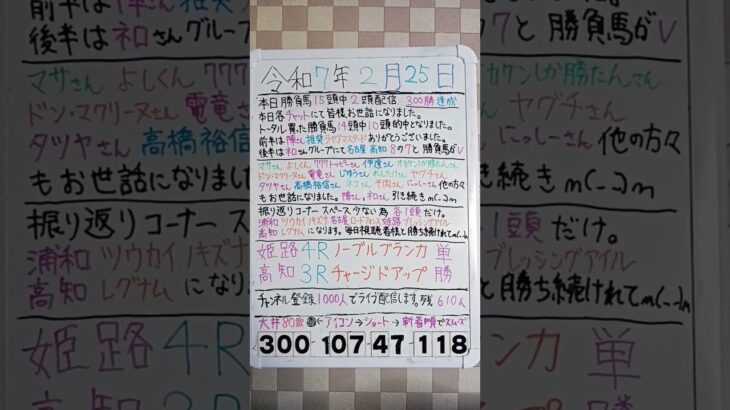 令和7年2月25日
本日勝負馬15頭中2頭配信 300勝達成
本日各チャットにて皆様お世話になりました。
トータル買った勝負馬14頭中10頭的中となりました。
前半は陣さん推奨ライヴマスタードありがとうございました。
後半は和さんグループにて名古屋 高知 8の7と 勝負馬がV
マサさん よしくん 777トッピーさん 伊達さん オカケンしか勝たんさん
ドン・マクリーヌさん 電竜さん じゆうさん れんたけさん ヤグチさん
タツヤさん 高橋裕信さん ネコさん 平岡さん にっしーさん 他の方々
もお世話になりました。陣さん、和さん 引き続き m(_ _)m
振り返りコーナー スペース少ない為 各1頭だけ。
浦和 ツウカイノキズナ 名古屋 ロードフォンス 姫路 ブレッシングアイル
高知 レグナムになります。毎日視聴者様と勝ち続けれてm(_ _)m
姫路 4R ノーブルブランカ 単
高知 3R チャージドアップ 勝
チャンネル登録1000人でライブ配信します。残 610人
大井80歳 アイコン→ショート→新着順でスムーズ
300 107 47 118